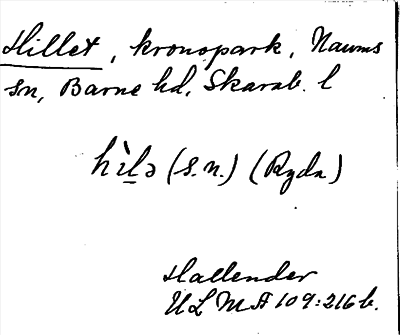 Hillet, kronopark, Naums
sn, Barne hd, Skarab. l
hìl̠ə (s.n.) (Ryda)
Hallender
ULMA 109:216 b.